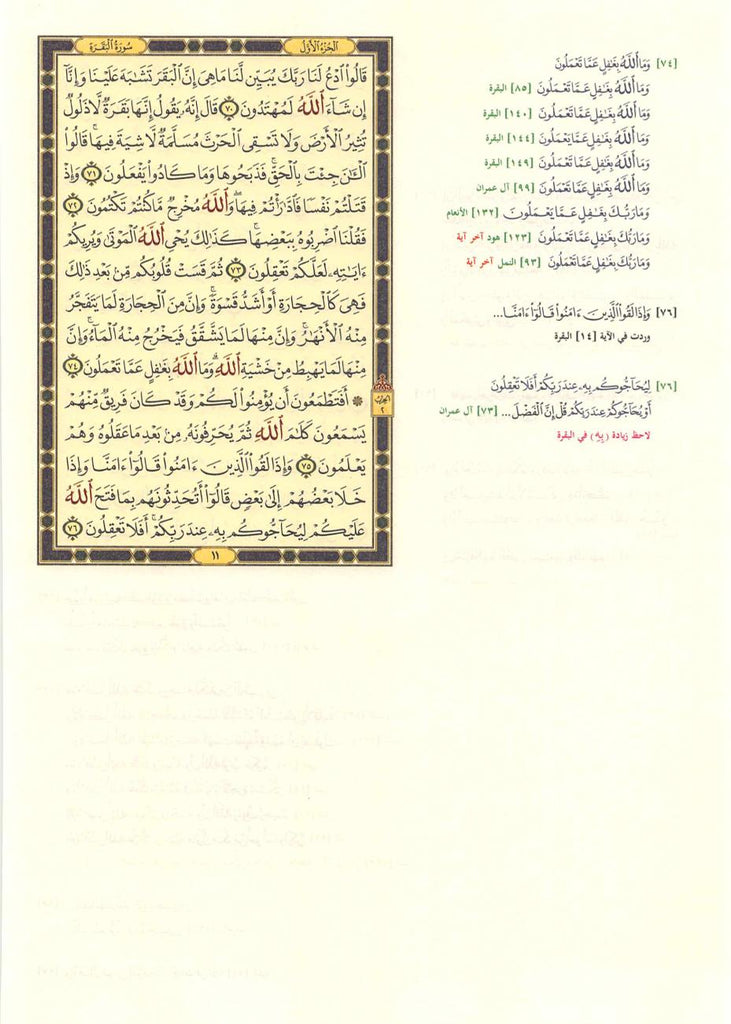 الجزء الأول
سورة البقرة
قَالُوا۟ ٱدْعُ لَنَا رَبَّكَ يُبَيِّن لَّنَا مَا هِىَ إِنَّ ٱلْبَقَرَ تَشَٰبَهَ عَلَيْنَا وَإِنَّآ
إِن شَآءَ ٱللَّهُ لَمُهْتَدُونَ ٧٠ قَالَ إِنَّهُۥ يَقُولُ إِنَّهَا بَقَرَةٌ لَّا ذَلُولٌ
تُثِيرُ ٱلْأَرْضَ وَلَا تَسْقِى ٱلْحَرْثَ مُسَلَّمَةٌ لَّا شِيَةَ فِيهَا ۚ قَالُوا۟
ٱلْـَٰٔنَ جِئْتَ بِٱلْحَقِّ ۚ فَذَبَحُوهَا وَمَا كَادُوا۟ يَفْعَلُونَ ٧١ وَإِذْ
قَتَلْتُمْ نَفْسًا فَٱدَّٰرَْٰٔتُمْ فِيهَا ۖ وَٱللَّهُ مُخْرِجٌ مَّا كُنتُمْ تَكْتُمُونَ ٧٢
فَقُلْنَا ٱضْرِبُوهُ بِبَعْضِهَا ۚ كَذَٰلِكَ يُحْىِ ٱللَّهُ ٱلْمَوْتَىٰ وَيُرِيكُمْ
ءَايَٰتِهِۦ لَعَلَّكُمْ تَعْقِلُونَ ٧٣ ثُمَّ قَسَتْ قُلُوبُكُم مِّنۢ بَعْدِ ذَٰلِكَ
فَهِىَ كَٱلْحِجَارَةِ أَوْ أَشَدُّ قَسْوَةً ۚ وَإِنَّ مِنَ ٱلْحِجَارَةِ لَمَا يَتَفَجَّرُ
مِنْهُ ٱلْأَنْهَٰرُ ۚ وَإِنَّ مِنْهَا لَمَا يَشَّقَّقُ فَيَخْرُجُ مِنْهُ ٱلْمَآءُ ۚ وَإِنَّ
مِنْهَا لَمَا يَهْبِطُ مِنْ خَشْيَةِ ٱللَّهِ ۗ وَمَا ٱللَّهُ بِغَٰفِلٍ عَمَّا تَعْمَلُونَ ٧٤
۞ أَفَتَطْمَعُونَ أَن يُؤْمِنُوا۟ لَكُمْ وَقَدْ كَانَ فَرِيقٌ مِّنْهُمْ
يَسْمَعُونَ كَلَٰمَ ٱللَّهِ ثُمَّ يُحَرِّفُونَهُۥ مِنۢ بَعْدِ مَا عَقَلُوهُ وَهُمْ
يَعْلَمُونَ ٧٥ وَإِذَا لَقُوا۟ ٱلَّذِينَ ءَامَنُوا۟ قَالُوٓا۟ ءَامَنَّا وَإِذَا
خَلَا بَعْضُهُمْ إِلَىٰ بَعْضٍ قَالُوٓا۟ أَتُحَدِّثُونَهُم بِمَا فَتَحَ ٱللَّهُ
عَلَيْكُمْ لِيُحَآجُّوكُم بِهِۦ عِندَ رَبِّكُمْ ۚ أَفَلَا تَعْقِلُونَ ٧٦
١١
الحزب
٢
[٧٤] وَمَا ٱللَّهُ بِغَٰفِلٍ عَمَّا تَعْمَلُونَ
وَمَا ٱللَّهُ بِغَٰفِلٍ عَمَّا تَعْمَلُونَ [٨٥] البقرة
وَمَا ٱللَّهُ بِغَٰفِلٍ عَمَّا تَعْمَلُونَ [١٤٠] البقرة
وَمَا ٱللَّهُ بِغَٰفِلٍ عَمَّا يَعْمَلُونَ [١٤٤] البقرة
وَمَا ٱللَّهُ بِغَٰفِلٍ عَمَّا تَعْمَلُونَ [١٤٩] البقرة
وَمَا ٱللَّهُ بِغَٰفِلٍ عَمَّا تَعْمَلُونَ [٩٩] آل عمران
وَمَا رَبُّكَ بِغَٰفِلٍ عَمَّا يَعْمَلُونَ [١٣٢] الأنعام
وَمَا رَبُّكَ بِغَٰفِلٍ عَمَّا تَعْمَلُونَ [١٢٣] هود آخر آية
وَمَا رَبُّكَ بِغَٰفِلٍ عَمَّا تَعْمَلُونَ [٩٣] النمل آخر آية
[٧٦] وَإِذَا لَقُوا۟ ٱلَّذِينَ ءَامَنُوا۟ قَالُوٓا۟ ءَامَنَّا...
وردت في الآية [١٤] البقرة
[٧٦] لِيُحَآجُّوكُم بِهِۦ عِندَ رَبِّكُمْ أَفَلَا تَعْقِلُونَ
أَوْ يُحَآجُّوكُمْ عِندَ رَبِّكُمْ قُلْ إِنَّ ٱلْفَضْلَ... [٧٣] آل عمران
لاحظ زيادة (بِهِ) في البقرة